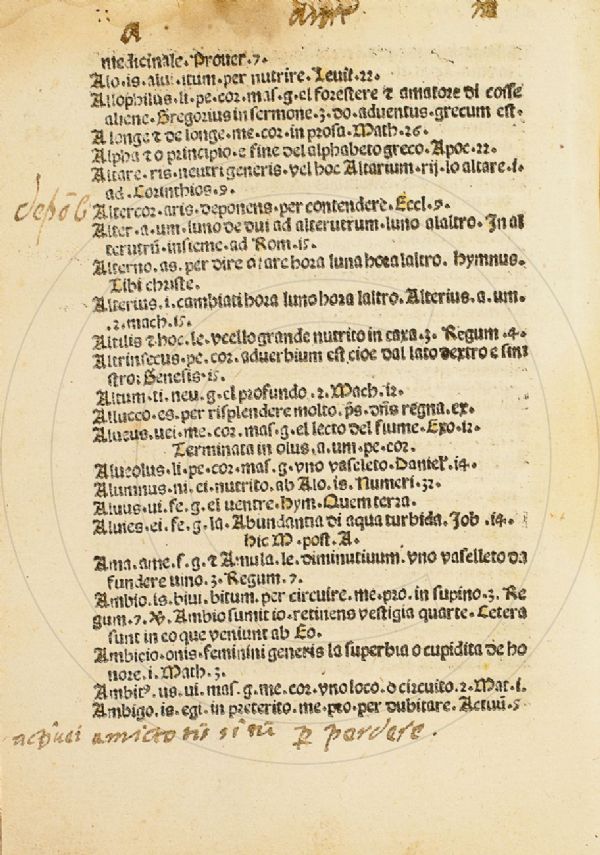 a
medicinale. Prouer. 7.
Alo. is. alui. itum. per nutrire. Leuit. 22.
Allophilus. li. pe. cor. mas. g. el forestere ⁊ amatore di cosse
aliene. Gregorius in sermone. 3. do. aduentus. grecum est.
A longe ⁊ de longe. me. cor. in prosa. Math. 26.
Alpha ⁊ o principio. e fine del alphabeto greco. Apoc. 22.
Altare. ris. neutri generis. vel hoc Altarium. rij. lo altare. i.
ad. Corinthios. 9.
Altercor. aris. deponens. per contendere. Eccl. 9.
Alter. a. um. luno de dui ad alterutrum. luno alaltro. In al
terutrū. insieme. ad Rom. 15.
Alterno. as. per dire a fare hora luna hora laltro. hymnus.
Tibi christe.
Alterius. i. cambiati hora luno hora laltro. Alterius. a. um.
.2. mach. 15.
Altilis ⁊ hoc. le. vcello grande nutrito in caxa. 3. Regum. 4.
Altrinsecus. pe. cor. aduerbium est. cioe dal lato dextro e sini
stro: Genesis. 15.
Altum. ti. neu. g. el profundo. 2. Mach. 12.
Allucco. es. per risplendere molto. p̄s. dn̄s regna. ex.
Alueus. uei. me. cor. mas. g. el lecto del fiume. Exo. 12.
Terminata in olus. a. um. pe. cor.
Alueolus. li. pe. cor. mas. g. vno vaseleto. Daniel. 14.
Alumnus. ni. el nutrito. ab Alo. is. Numeri. 32.
Aluus. ui. fe. g. el uentre. Hym. Quem terra.
Aluies. ei. fe. g. la. Abundantia di aqua turbida. Job. 14.
Hic M. post. A.
Ama. ame. f. g. ⁊ Amula. le. diminutiuum. vno vaselleto da
fundere uino. 3. Regum. 7.
Ambio. is. biui. bitum. per circuire. me. pro. in supino. 3. Re
gum. 7. Ambio sumit io. retinens vestigia quarte. Cetera
sunt in eo que veniunt ab Eo.
Ambicio. onis. feminini generis la superbia o cupidita de ho
nore. i. Math. 3.
Ambit⁹. us. ui. mas. g. me. cor. vno loco. o circuito. 2. Mat. i.
Ambigo. is. egi. in preterito. me. pro. per dubitare. Actuū. 5
perdere.